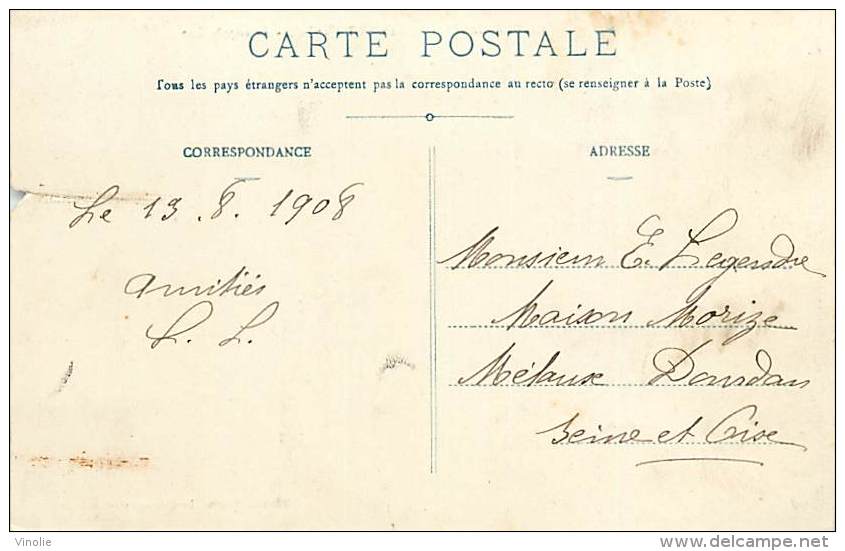 CARTE POSTALE
Tous les pays étrangers n'acceptent pas la correspondance au recto (se renseigner à la Poste)
CORRESPONDANCE
Le 13. 8. 1908
Amitiés
L. L.
ADRESSE
Monsieur E. Legendre
Maison Morize
Métaux Dourdan
Seine et Oise
Vinolie
delcampe.net